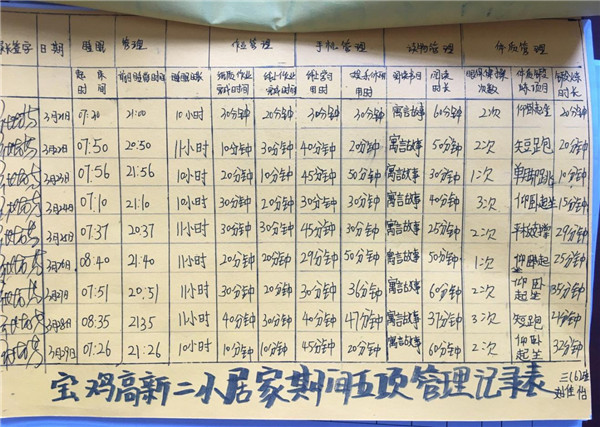 签字 日期 睡眠 管理 作业管理 手机管理 读物管理 体质管理
起床时间 前日睡着时间 睡眠时长 纸质作业完成时间 线上作业完成时间 用时 用时 阅读书目 阅读时长 眼保健操次数 体质锻炼项目 锻炼时长
3月21日 07:30 21:00 10小时 30分钟 20分钟 30分钟 30分钟 寓言故事 60分钟 2次 仰卧起坐 20分钟
3月22日 07:50 20:50 11小时 10分钟 30分钟 40分钟 20分钟 寓言故事 50分钟 2次 短跑 20分钟
3月23日 07:56 21:56 10小时 20分钟 10分钟 45分钟 50分钟 寓言故事 30分钟 1次 单脚跳 10分钟
3月24日 07:10 21:10 10小时 30分钟 20分钟 30分钟 30分钟 寓言故事 40分钟 3次 仰卧起坐 15分钟
3月25日 07:37 20:37 11小时 30分钟 30分钟 45分钟 30分钟 寓言故事 25分钟 2次 平板支撑 29分钟
3月26日 08:40 21:40 11小时 20分钟 20分钟 29分钟 50分钟 寓言故事 50分钟 1次 仰卧起坐 25分钟
3月27日 07:51 20:51 11小时 30分钟 20分钟 30分钟 36分钟 寓言故事 60分钟 2次 仰卧起坐 35分钟
3月28日 08:35 2135 11小时 40分钟 30分钟 40分钟 47分钟 寓言故事 37分钟 3次 短跑 21分钟
3月29日 07:26 21:26 10小时 10分钟 10分钟 45分钟 20分钟 寓言故事 60分钟 2次 仰卧起坐 32分钟
宝鸡高新二小居家期间五项管理记录表
三(6)班
刘佳怡